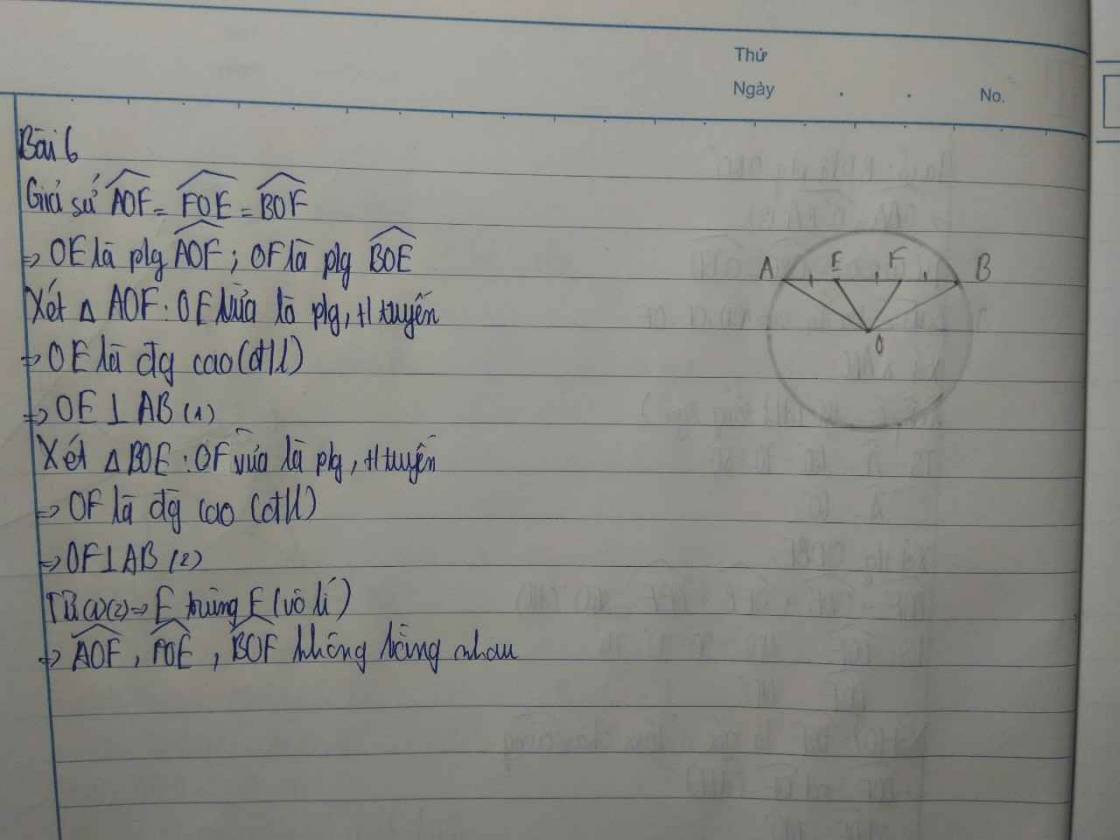 Thứ
Ngày . . No.
Bài 6
Giả sử AOF = FOE = BOF
=> OE là plg AOF ; OF là plg BOE
Xét △ AOF : OE vừa là plg, tt tuyến
=> OE là đg cao (đtl)
=> OE ⊥ AB (1)
Xét △ BOE : OF vừa là plg, tt tuyến
=> OF là đg cao (đtl)
=> OF ⊥ AB (2)
Từ (1)(2) => E trùng F (vô lí)
=> AOF , FOE , BOF không bằng nhau
A E F B
O